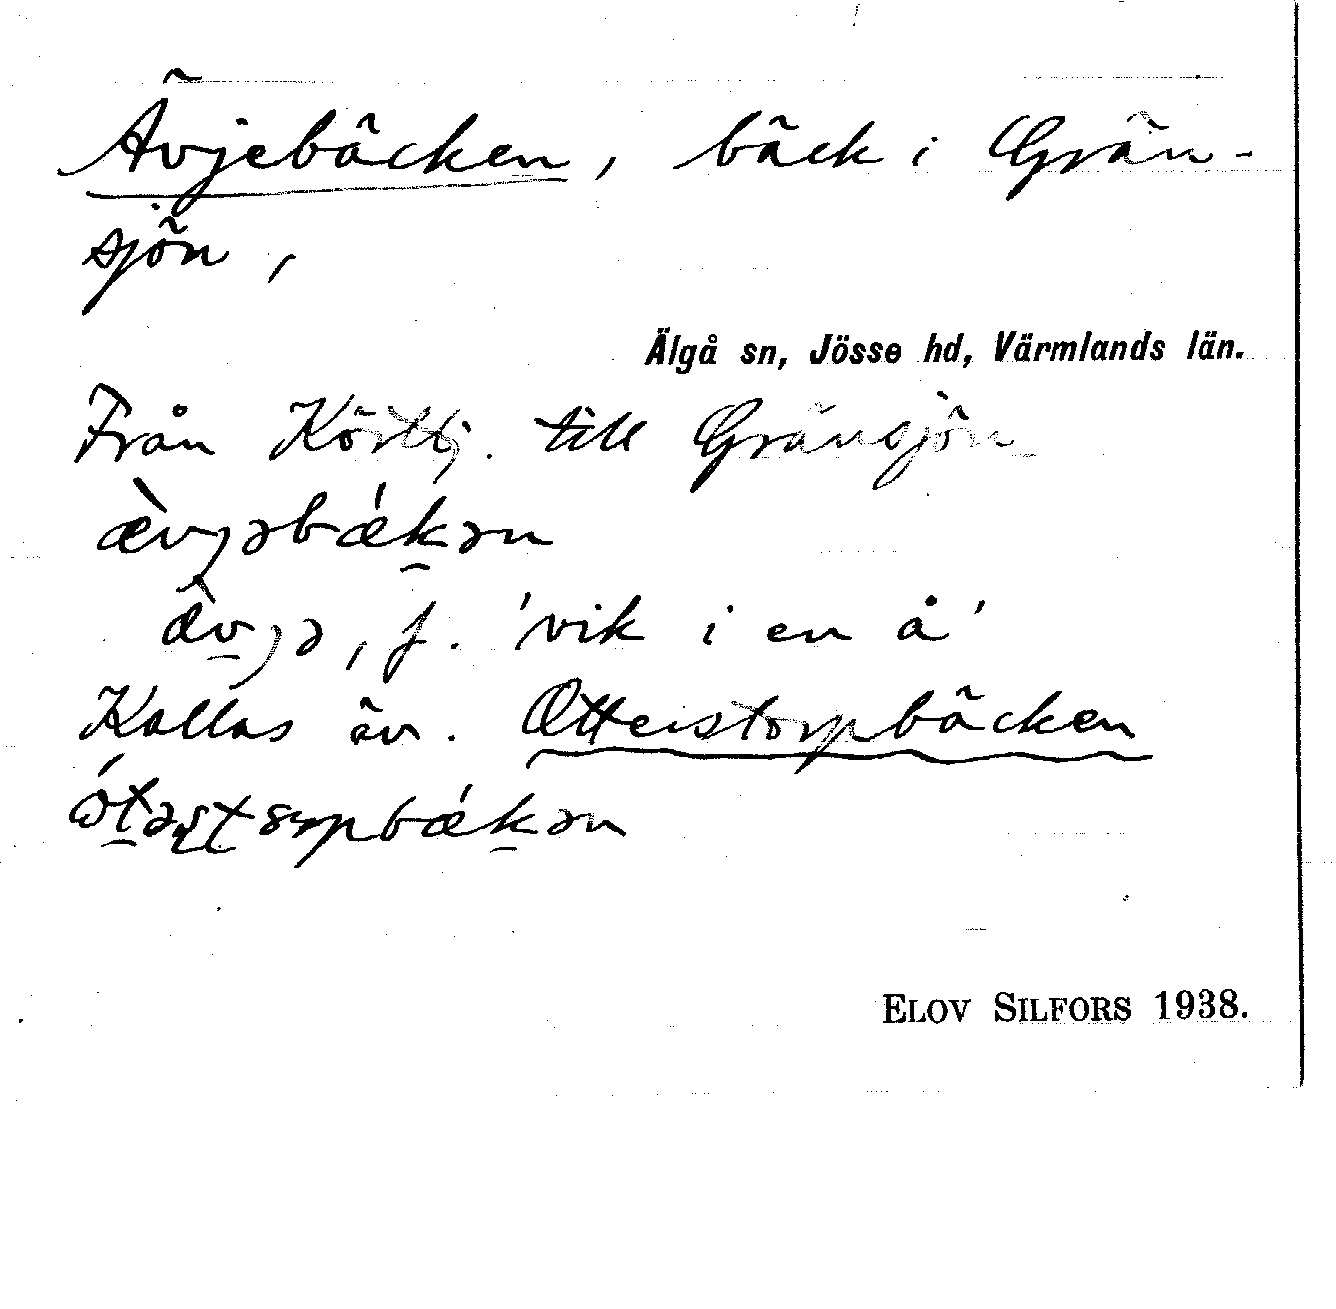 Ävjebäcken, bäck i Grän-
sjön,
Älgå sn, Jösse hd, Värmlands län.
Från Körttj. till Gränsjön
æ̀vjəbǽkən
æ̀vjə, f. 'vik i en å'
Kallas äv. Otterstorpbäcken
ótəstorpbǽkən
ELOV SILFORS 1938.